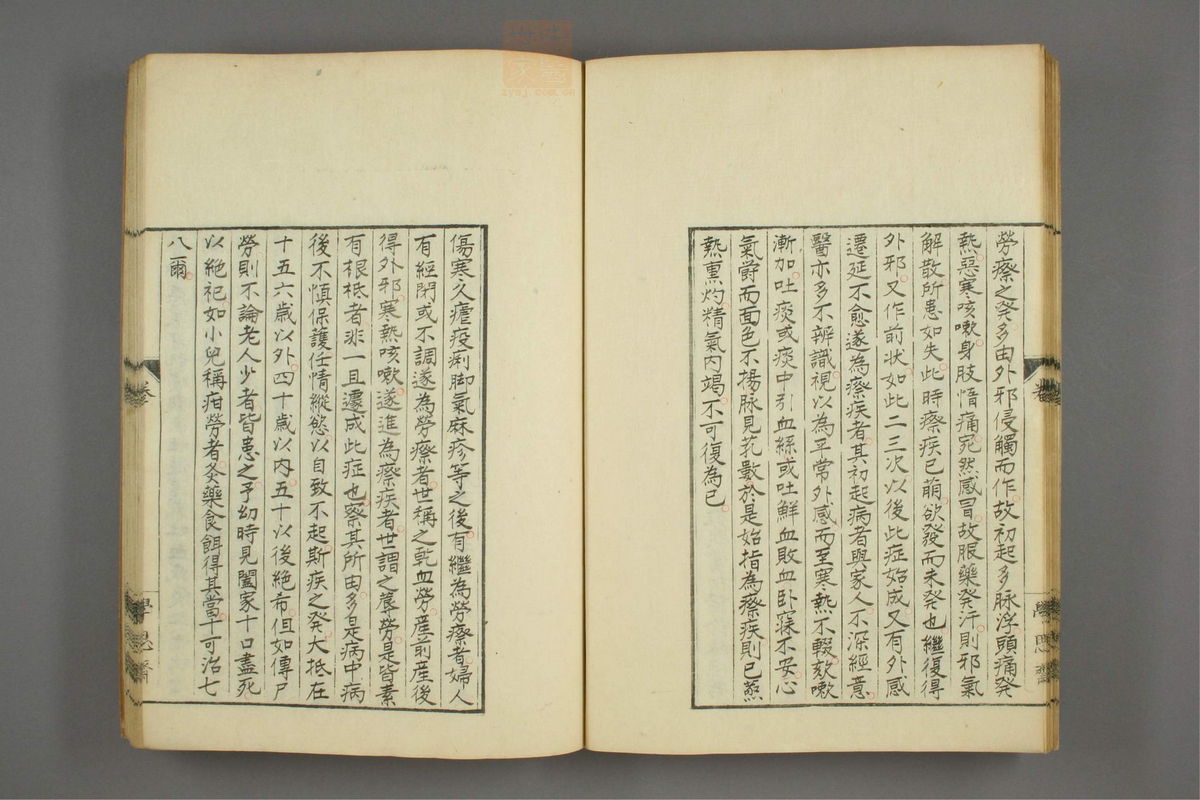 勞瘵之發多由外邪侵觸而作故初起多脉浮頭痛發
熱惡寒咳嗽身肢惰痛宛然感冒故服藥發汗則邪氣
解散所患如失此時瘵疾已萠欲發而未發也繼復得
外邪又作前状如此二三次以後此症始成又有外感
遷延不愈遂為瘵疾者其初起病者與家人不深經意
醫亦多不辨識視以為平常外感而至寒熱不輟欬嗽
漸加吐痰或痰中引血絲或吐鮮血敗血卧寐不安心
氣欝而面色不揚脉見芤數於是始指為瘵疾則已蒸
熱熏灼精氣内竭不可復為已
傷寒久瘧疫痢脚氣麻疹等之後有繼為勞瘵者婦人
有經閉或不調遂為勞瘵者世稱之乾血勞産前産後
得外邪寒熱咳嗽遂進為瘵疾者世謂之蓐勞是皆素
有根柢者非一旦遷成此症也察其所由多是病中病
後不慎保護任情縱慾以自致不起斯疾之發大抵在
十五六歳以外四十歳以内五十以後絶希但如傳尸
勞則不論老人少者皆患之予幼時見闔家十口盡死
以絶祀如小兒稱疳勞者灸藥食餌得其當十可治七
八爾
卷
學思齋